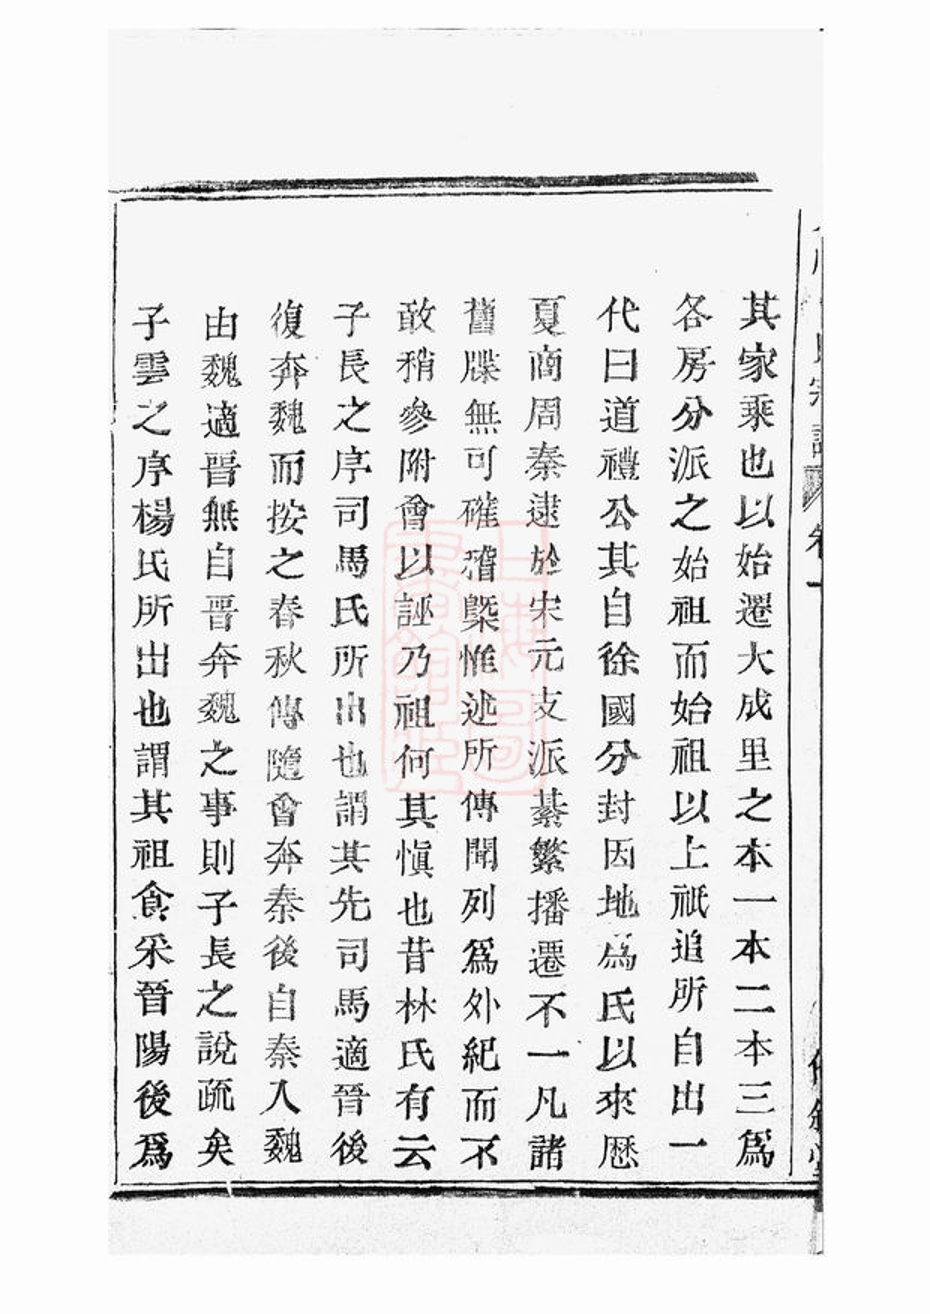 其家乘也以始遷大成里之本一本二本三爲
各房分派之始祖而始祖以上祇追所自出一
代曰道禮公其自徐國分封因地爲氏以來歷
夏商周秦逮於宋元支派綦繁播遷不一凡諸
舊牒無可確稽槩惟述所傳聞列爲外紀而不
敢稍參附會以誣乃祖何其愼也昔林氏有云
子長之序司馬氏所出也謂其先司馬適晉後
復奔魏而按之春秋傳隨會奔秦後自秦入魏
由魏適晉無自晉奔魏之事則子長之說疏矣
子雲之序楊氏所出也謂其祖食采晉陽後爲